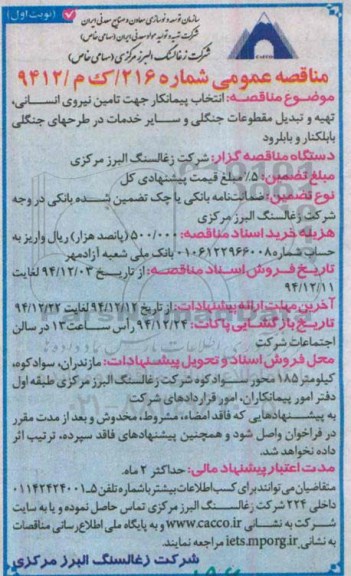 (نوبت اول)
سازمان توسعه و نوسازی معادن و صنایع معدنی ایران
شرکت تهیه و تولید مواد معدنی ایران (سهامی خاص)
شرکت زغالسنگ البرز مرکزی (سهامی خاص)
مناقصه عمومی شماره ۲۱۶/ک م/۹۴۱۲
موضوع مناقصه: انتخاب پیمانکار جهت تامین نیروی انسانی،
تهیه و تبدیل مقطوعات جنگلی و سایر خدمات در طرحهای جنگلی
بابلکنار و بابلرود
دستگاه مناقصه گزار: شرکت زغالسنگ البرز مرکزی
مبلغ تضمین: ۵٪ مبلغ قیمت پیشنهادی کل
نوع تضمین: ضمانتنامه بانکی یا چک تضمین شده بانکی در وجه
شرکت زغالسنگ البرز مرکزی
هزینه خرید اسناد مناقصه: ۵۰۰/۰۰۰ (پانصد هزار) ریال واریز به
حساب شماره ۰۱۰۶۱۲۲۹۶۶۰۰۸ بانک ملی شعبه آزادمهر
تاریخ فروش اسناد مناقصه: از تاریخ ۹۴/۱۲/۰۳ لغایت
۹۴/۱۲/۱۱
آخرین مهلت ارائه پیشنهادات: از تاریخ ۹۴/۱۲/۱۲ لغایت ۹۴/۱۲/۲۲
تاریخ بازگشایی پاکات: ۹۴/۱۲/۲۴ رأس ساعت ۱۳ در سالن
اجتماعات شرکت
محل فروش اسناد و تحویل پیشنهادات: مازندران، سوادکوه،
کیلومتر ۱۸۵ محور سوادکوه شرکت زغالسنگ البرز مرکزی طبقه اول
دفتر امور پیمانکاران، امور قراردادهای شرکت
به پیشنهادهایی که فاقد امضاء، مشروط، مخدوش و بعد از مدت مقرر
در فراخوان واصل شود و همچنین پیشنهادهای فاقد سپرده، ترتیب اثر
داده نخواهد شد.
مدت اعتبار پیشنهاد مالی: حداکثر ۲ ماه.
متقاضیان می توانند برای کسب اطلاعات بیشتر با شماره تلفن ۵-۰۱۱۴۲۴۲۴۰۰۱
داخلی ۲۲۴ شرکت زغالسنگ البرز مرکزی تماس حاصل نموده و یا به سایت
شرکت به نشانی www.cacco.ir و به پایگاه ملی اطلاع رسانی مناقصات
به نشانی iets.mporg.ir مراجعه نمایند.
شرکت زغالسنگ البرز مرکزی